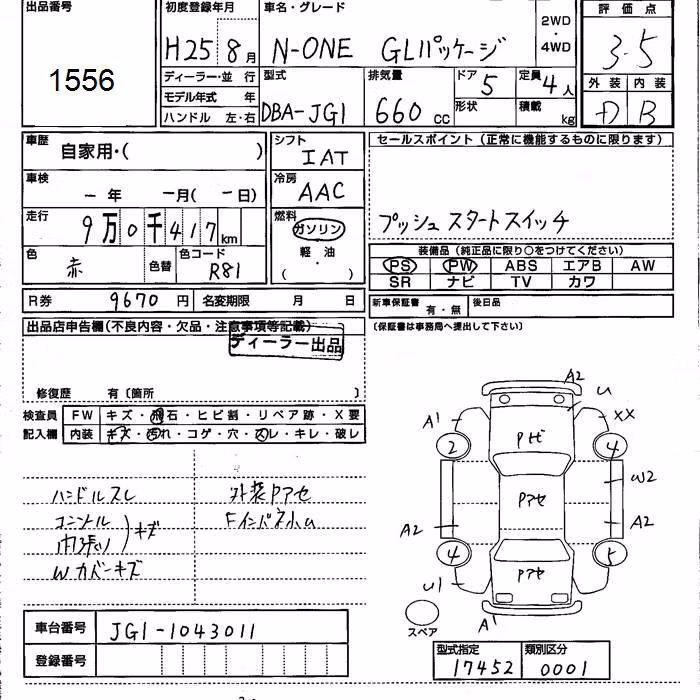 出品番号 1556
初度登録年月 H25年 8月
車名・グレード N-ONE GLパッケージ 2WD・4WD
評価点 3.5
外装 内装 B
ディーラー・並行
モデル年式 年
ハンドル 左・右
型式 DBA-JG1
排気量 660 cc
ドア 5
形状
定員 4人
積載 kg
車歴 自家用・( )
シフト IAT
セールスポイント(正常に機能するものに限ります)
車検 ー年 ー月(ー日)
冷房 AAC
プッシュスタートスイッチ
走行 9万0千417km
燃料 ガソリン
軽・油
( )
色 赤 色替 色コード R81
装備品(純正品に限り○をつけてください)
PS PW ABS エアB AW
SR ナビ TV カワ
R券 9670円 名変期限 月 日
新車保証書 有・無 後日品
(保証書は事務局へ提出して下さい)
出品店申告欄(不良内容・欠品・注意事項等記載)
ディーラー出品
修復歴 有〔箇所 〕
検査員 FW キズ・飛石・ヒビ割・リペア跡・X要
記入欄 内装 キズ・汚れ・コゲ・穴・スレ・キレ・破レ
ハンドルスレ 外装Pアセ
キズ
Wカバーキズ
A2 U
A1 XX
2 Pビ 4
Pアセ W2
A2 A2
4 Pアセ 5
U1
A1
スペア
車台番号 JG1-1043011
登録番号
型式指定 17452
類別区分 0001